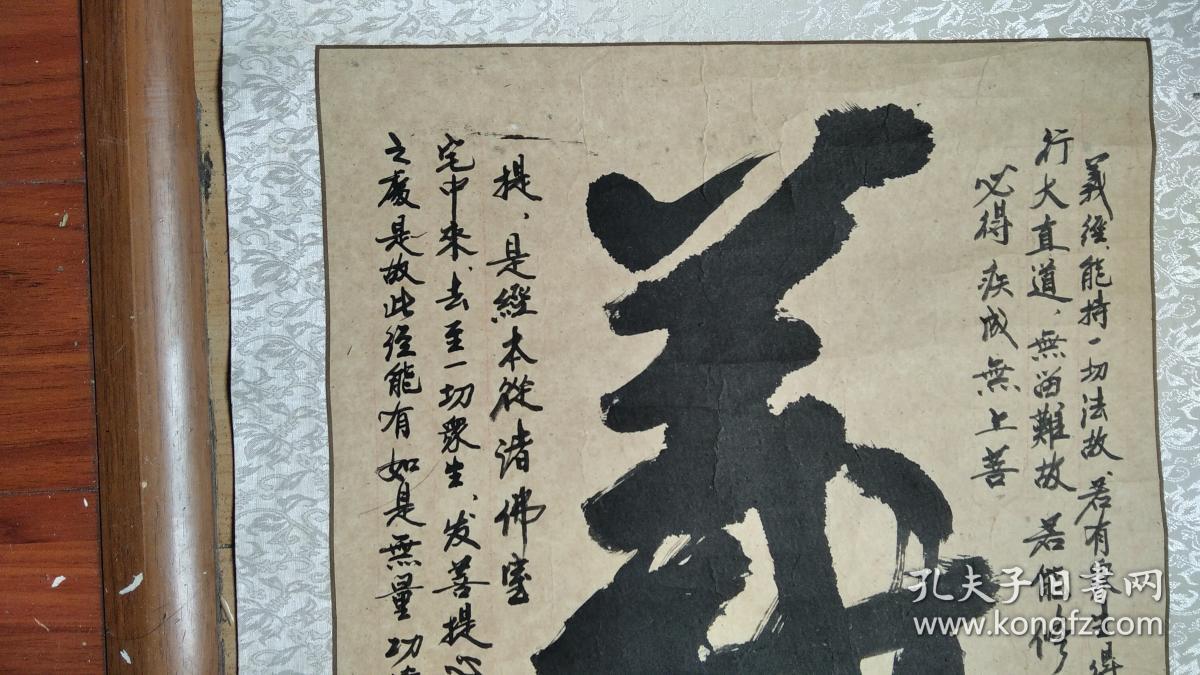 義經，能持一切法故，若有衆生得
行大直道，無留難故 若能修
必得疾成無上菩
義
提，是經本從諸佛室
宅中來，去至一切衆生、发菩提心
之處是故此经能有如是無量功
孔夫子旧書网
www.kongfz.com